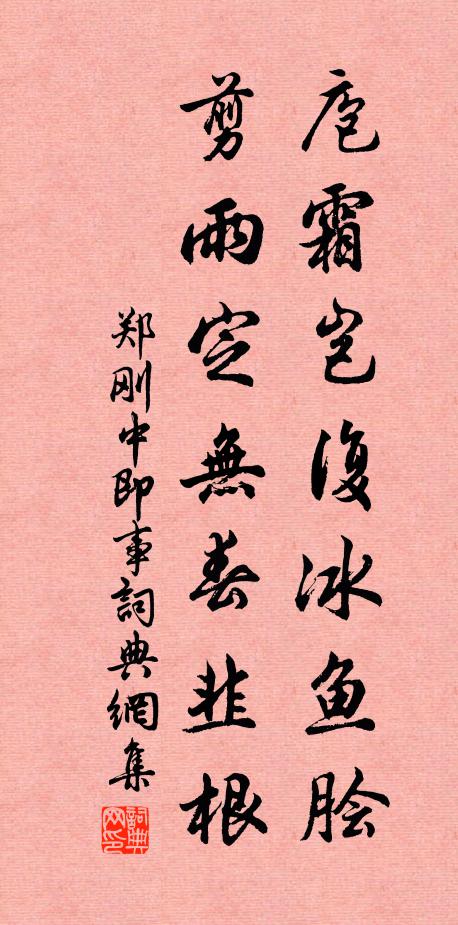 庖霜岂復冰鱼脍
剪雨定無春韮根
郑刚中即事詞典網集
詞典网印